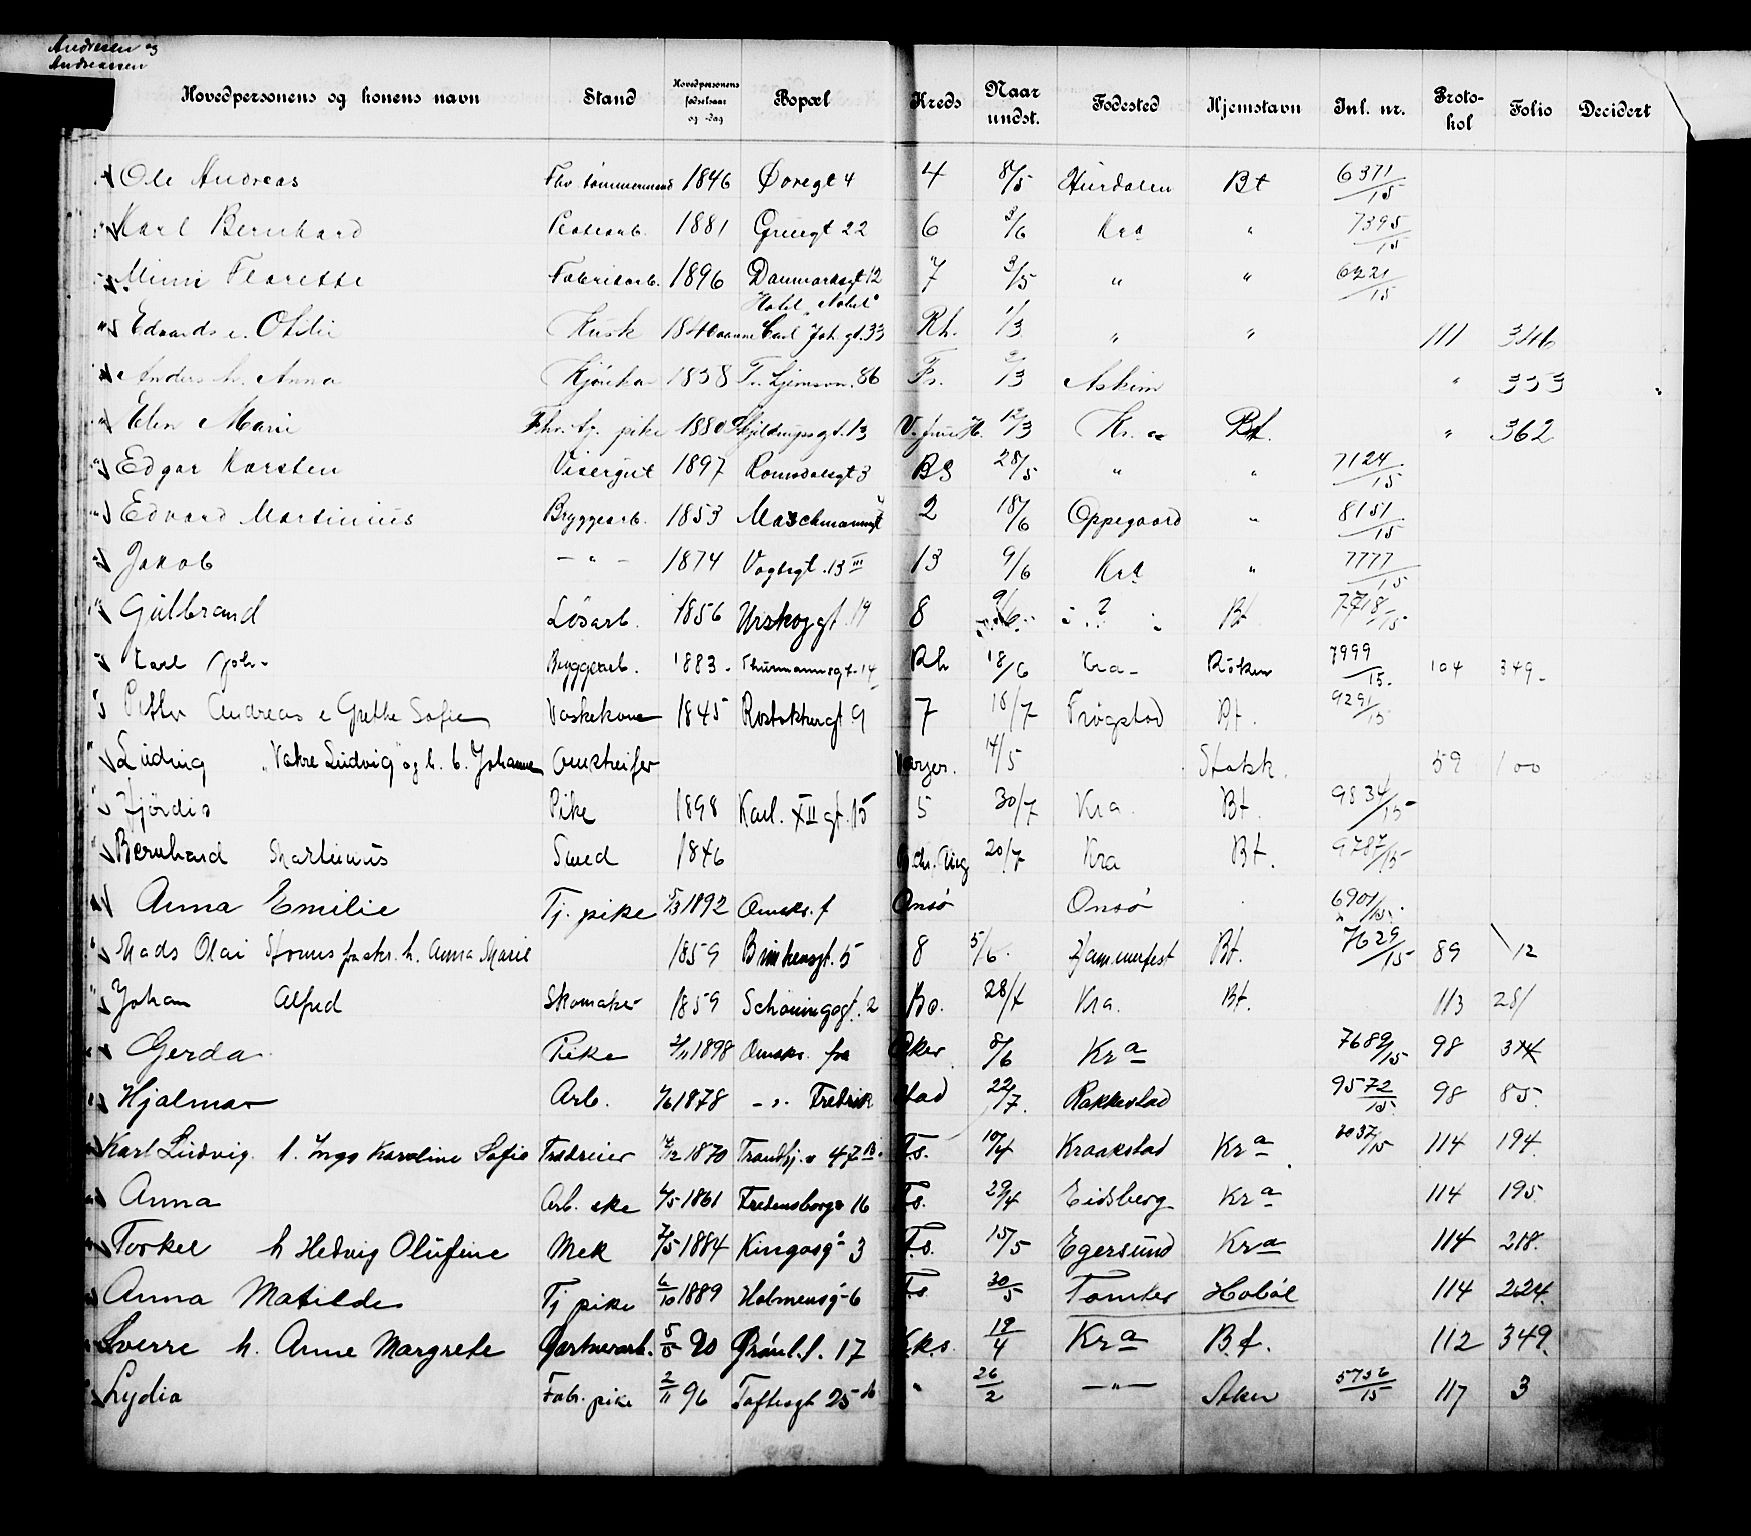 Andresen og
Andreassen
Hovedpersonens og konens navn Stand Hovedpersonens fødselsaar og -dag Bopæl Kreds Naar undst. Fødested Hjemstavn Inl. nr. Proto-kol Folio Decidert
Ole Andreas Fhv. tømmermand 1846 Øvregt 4 4 8/5 Hurdalen Bt 6371/15
Karl Bernhard 1881 Grünegt 22 6 3/6 Kra " 7395/15
Mimi Florette Fabrikarb. 1896 Danmarksgt 12 7 3/5 " " 6221/15
Hotel "Nobel"
Edvard e. Otilie Kusk 1840 Carl Joh. gt. 33 Rh. 1/3 " " 111 346
Anders h. Anna 1838 Tr. hjemsvn. 86 Fs. 2/3 Askim " 353
Elen Marie Fhv. tj. pike 1880 Skjoldungsgt. 13 V. frue H. 12/3 Kr. a Bt. " 362
Edgar Karsten Visergut 1897 Romsdalsgt 3 BS 28/5 " " 7124/15
Edvard Martinius Bryggearb. 1853 Maschmannsgt 2 18/6 Oppegaard " 8151/15
Jakob — " — 1874 Vogtsgt. 13 III 13 9/6 Kra " 7777/15
Gulbrand Løsarb. 1856 Urskoggt. 19 8 9/6 - ? - Bt 7718/15
Karl Joh. Bryggearb. 1883 Thurmannsgt. 14 Rh 18/6 Kra Røken 7999/15 104 349
Petter Andreas e Grethe Sofie Vaskekone 1845 Rostockergt 9 7 18/7 Trøgstad Bt. 9291/15
Ludvig "Vakre Ludvig" og h. b. Johanne Omstreifer 14/5 Stokk. 59 100
Hjørdis Pike 1898 Karl. XII gt. 15 5 30/7 Kra. Bt. 9834/15
Bernhard Martinius Smed 1846 20/7 Kra Bt. 9787/15
Anna Emilie Tj. pike 5/3 1892 Omskr. f Onsø Onsø 6901/15
Mads Olai Stornes fraskr. h. Anna Marie 1859 Brinkensgt. 5 8 5/6 Hammerfest Bt. 7629/15 89 12
Johan Alfred Skomaker 1859 Schøningsgt. 2 Bo. 28/7 Kra. Bt. 113 281
Gerda Pike 2/11 1898 Omskr. fra Aker 8/6 Kra 7689/15 98 314
Hjalmar Arb. 1/6 1878 - " - Fredrikstad 22/7 Rakkestad 9572/15 98 85
Karl Ludvig h. Inga Karoline Sofie 1870 Trondhj.v 47 B. Fs. 10/4 Kraakstad Kra 2037/15 114 194
Anna Arb. ske 4/5 1861 Fredensborgv 16 Fs. 29/4 Eidsberg Kra 114 195
Torkel h Hedvig Olufine Mek 7/5 1884 Kingosg 3 Fs. 15/5 Egersund Kra 114 218
Anna Matilde Tj pike 6/10 1889 Holmensg 6 Fs 30/5 Tomter Hobøl 114 224
Sverre h. Anne Margrete Gartnerarb. 90 Grønl. l. 17 K.k.s. 19/4 Kra Bt. 112 349
Lydia Fabr. pike 2/11 96 Toftesgt 25 " 26/2 —"— Aker 5756/15 117 3